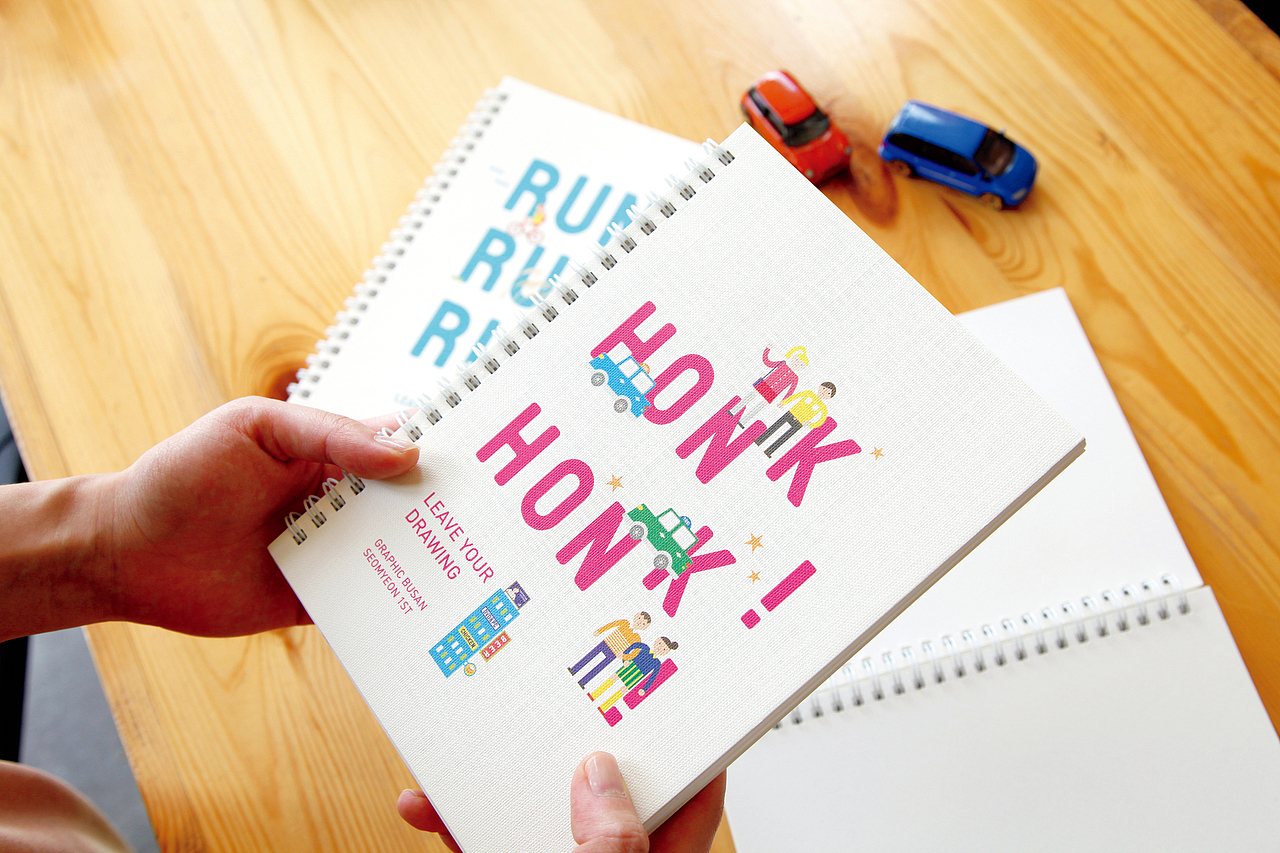 RUN
RU
R
HONK
HONK!
!
LEAVE YOUR
DRAWING
GRAPHIC BUSAN
SEOMYEON 1ST
CHICKEN
BEER